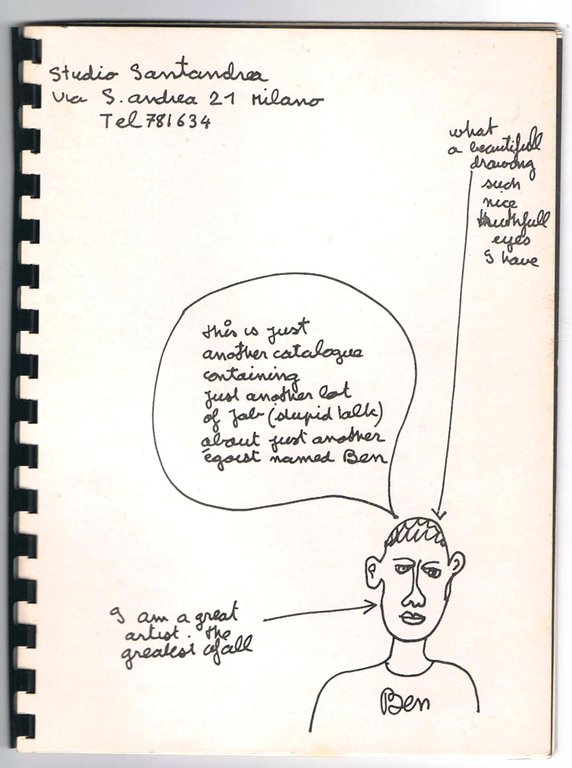 Studio Santandrea
Via S. andrea 21 Milano
Tel 781634
what
a beautifull
drawing
such
nice
truthfull
eyes
I have
this is just
another catalogue
containing
just another lot
of Jab (stupid talk)
about just another
égoist named Ben
I am a great
artist. the
greatest of all
Ben